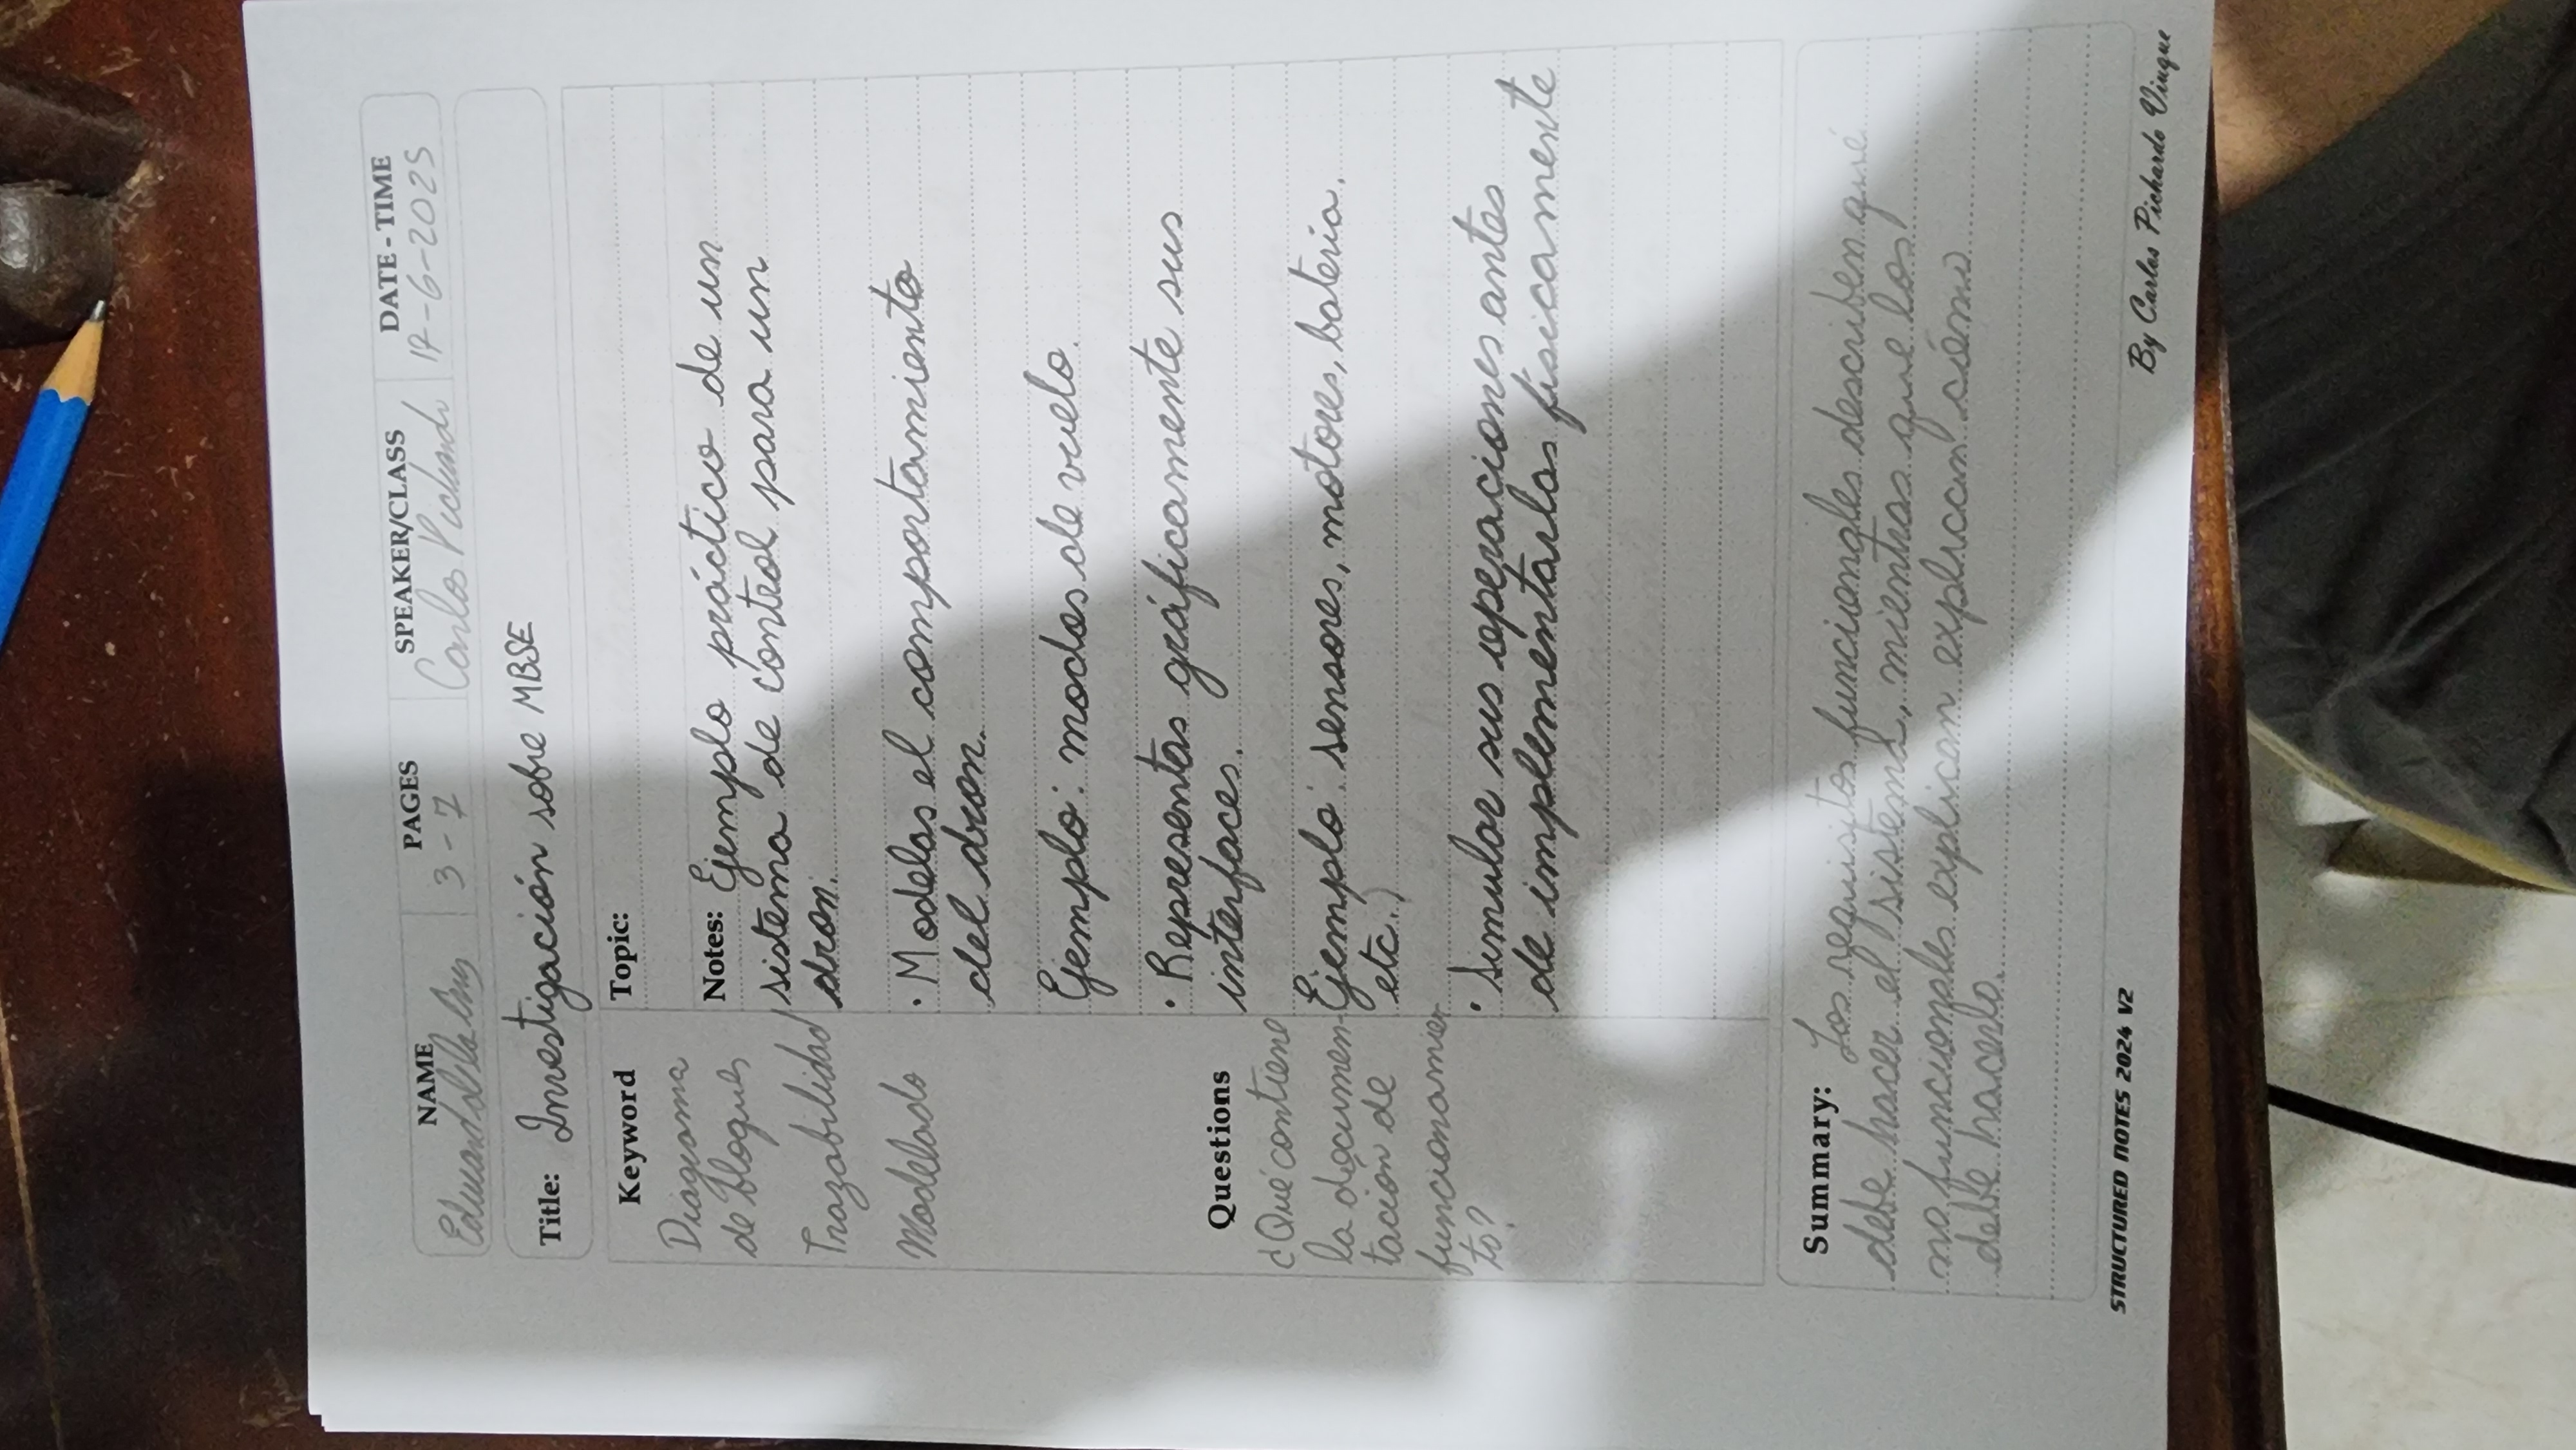 NAME
Eduard de la Cruz
PAGES
3-7
SPEAKER/CLASS
Carlos Pichardo
DATE - TIME
17-6-2025
Title: Investigación sobre MBSE
Keyword
Diagrama
de bloques
Trazabilidad
Modelado
Questions
¿Qué contiene
la documen-
tación de
funcionamien
to?
Topic:
Notes: Ejemplo práctico de un
sistema de control para un
dron.
· Modelas el comportamiento
del dron.
Ejemplo: modos de vuelo.
· Representas gráficamente sus
interfaces.
Ejemplo: sensores, motores, bateria.
etc.)
· Simular sus operaciones antes
de implementarlas físicamente
Summary: Los requisitos funcionales describen qué
debe hacer el sistema, mientras que los
no funcionales explican explican cómo
debe hacerlo.
STRUCTURED NOTES 2024 V2
By Carlos Pichardo Viuque